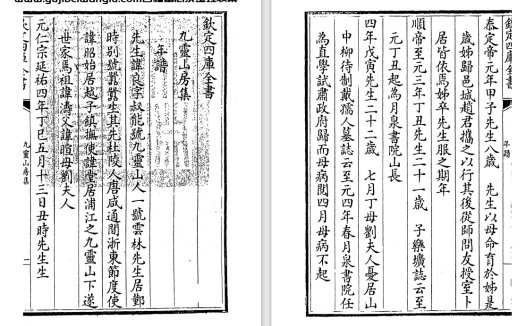 欽定四庫全書
九靈山房集
年譜
先生諱良字叔能號九靈山人一號雲林先生居鄞
時別號囂囂生其先杜陵人唐咸通間浙東節度使
諱昭始居越子鎮撫使諱堂居浦江之九靈山下遂
世家焉祖諱濤父諱暄母劉夫人
元仁宗延祐四年丁巳五月十三日丑時先生生
九靈山房集
一
欽定四庫全書
年譜
泰定帝元年甲子先生八歲 先生以母命育於姊是
歲姊歸邑城趙君攜之以行其後從師問友授室卜
居皆依焉姊卒先生服之期年
順帝至元三年丁丑先生二十一歲 子樂壙誌云至
元丁丑起為月泉書院山長
四年戊寅先生二十二歲 七月丁母劉夫人憂居山
中柳待制戴孺人墓誌云至元四年春月泉書院任
為直學試肅政府歸而母病閱四月母病不起